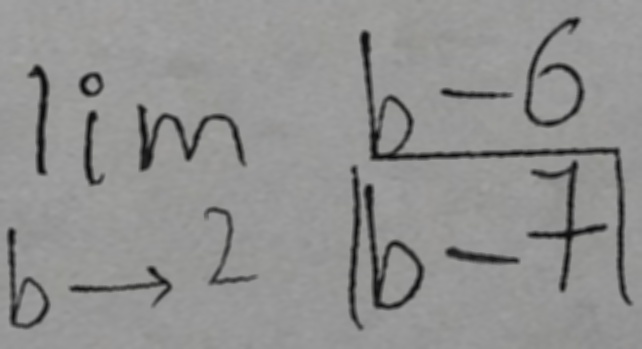 lim b→2 (b-6)/|b-7|